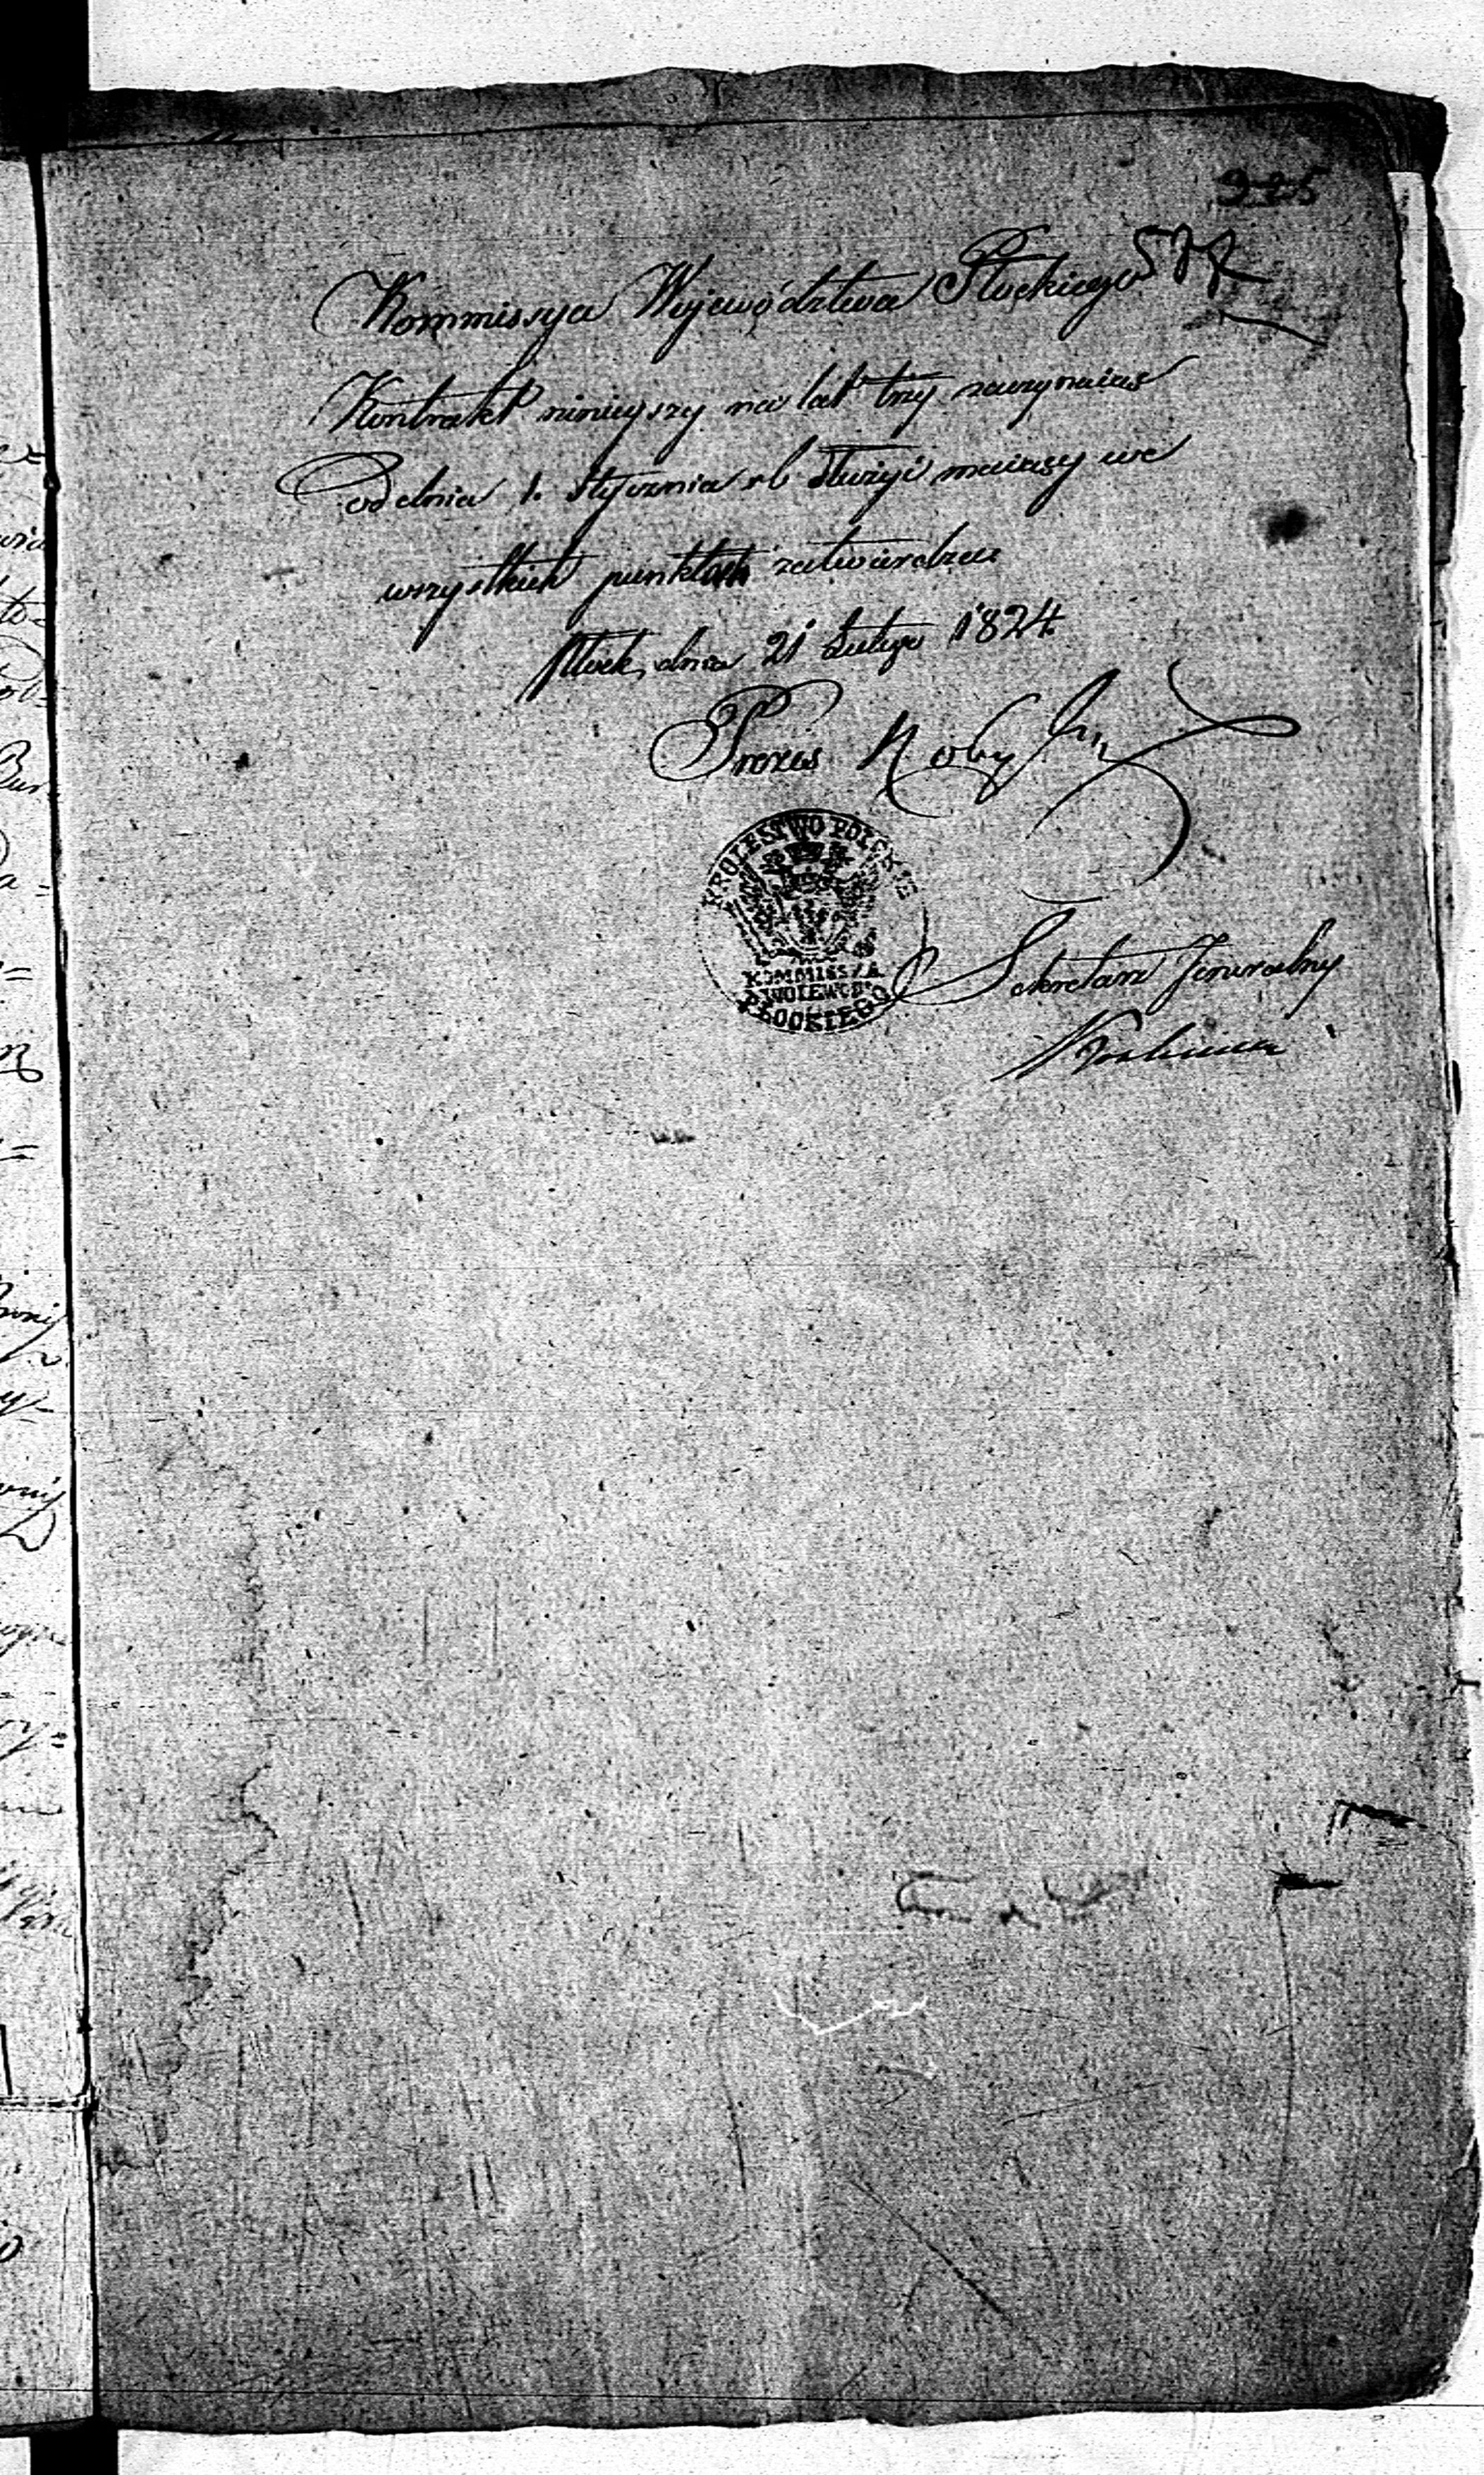 925
577
Kommissya Województwa Płockiego
Kontrakt ninieyszy na lat trzy zaczynaiąc
od dnia 1. Stycznia rb służyć maiący we
wszystkich punktach zatwierdza
Płock dnia 21 Lutego 1824.
Prezes Kobyliń
KROLESTWO POLSKIE
KOMMISSYA
WOIEWOD:
PŁOCKIEGO
Sekretarz Jeneralny